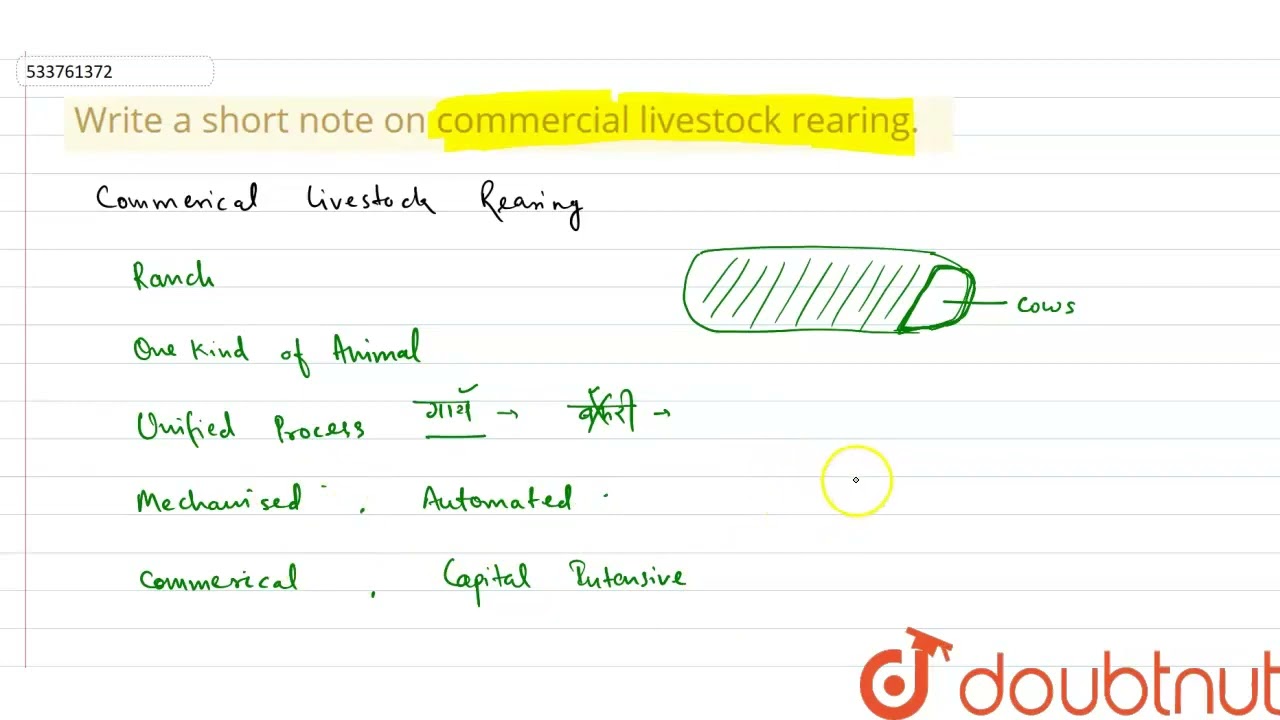 533761372
Write a short note on commercial livestock rearing.
Commerical Livestock Rearing
Ranch
cows
One Kind of Animal
Unified Process गाय → बकरी →
Mechanised . Automated .
Commerical , Capital Intensive
doubtnut